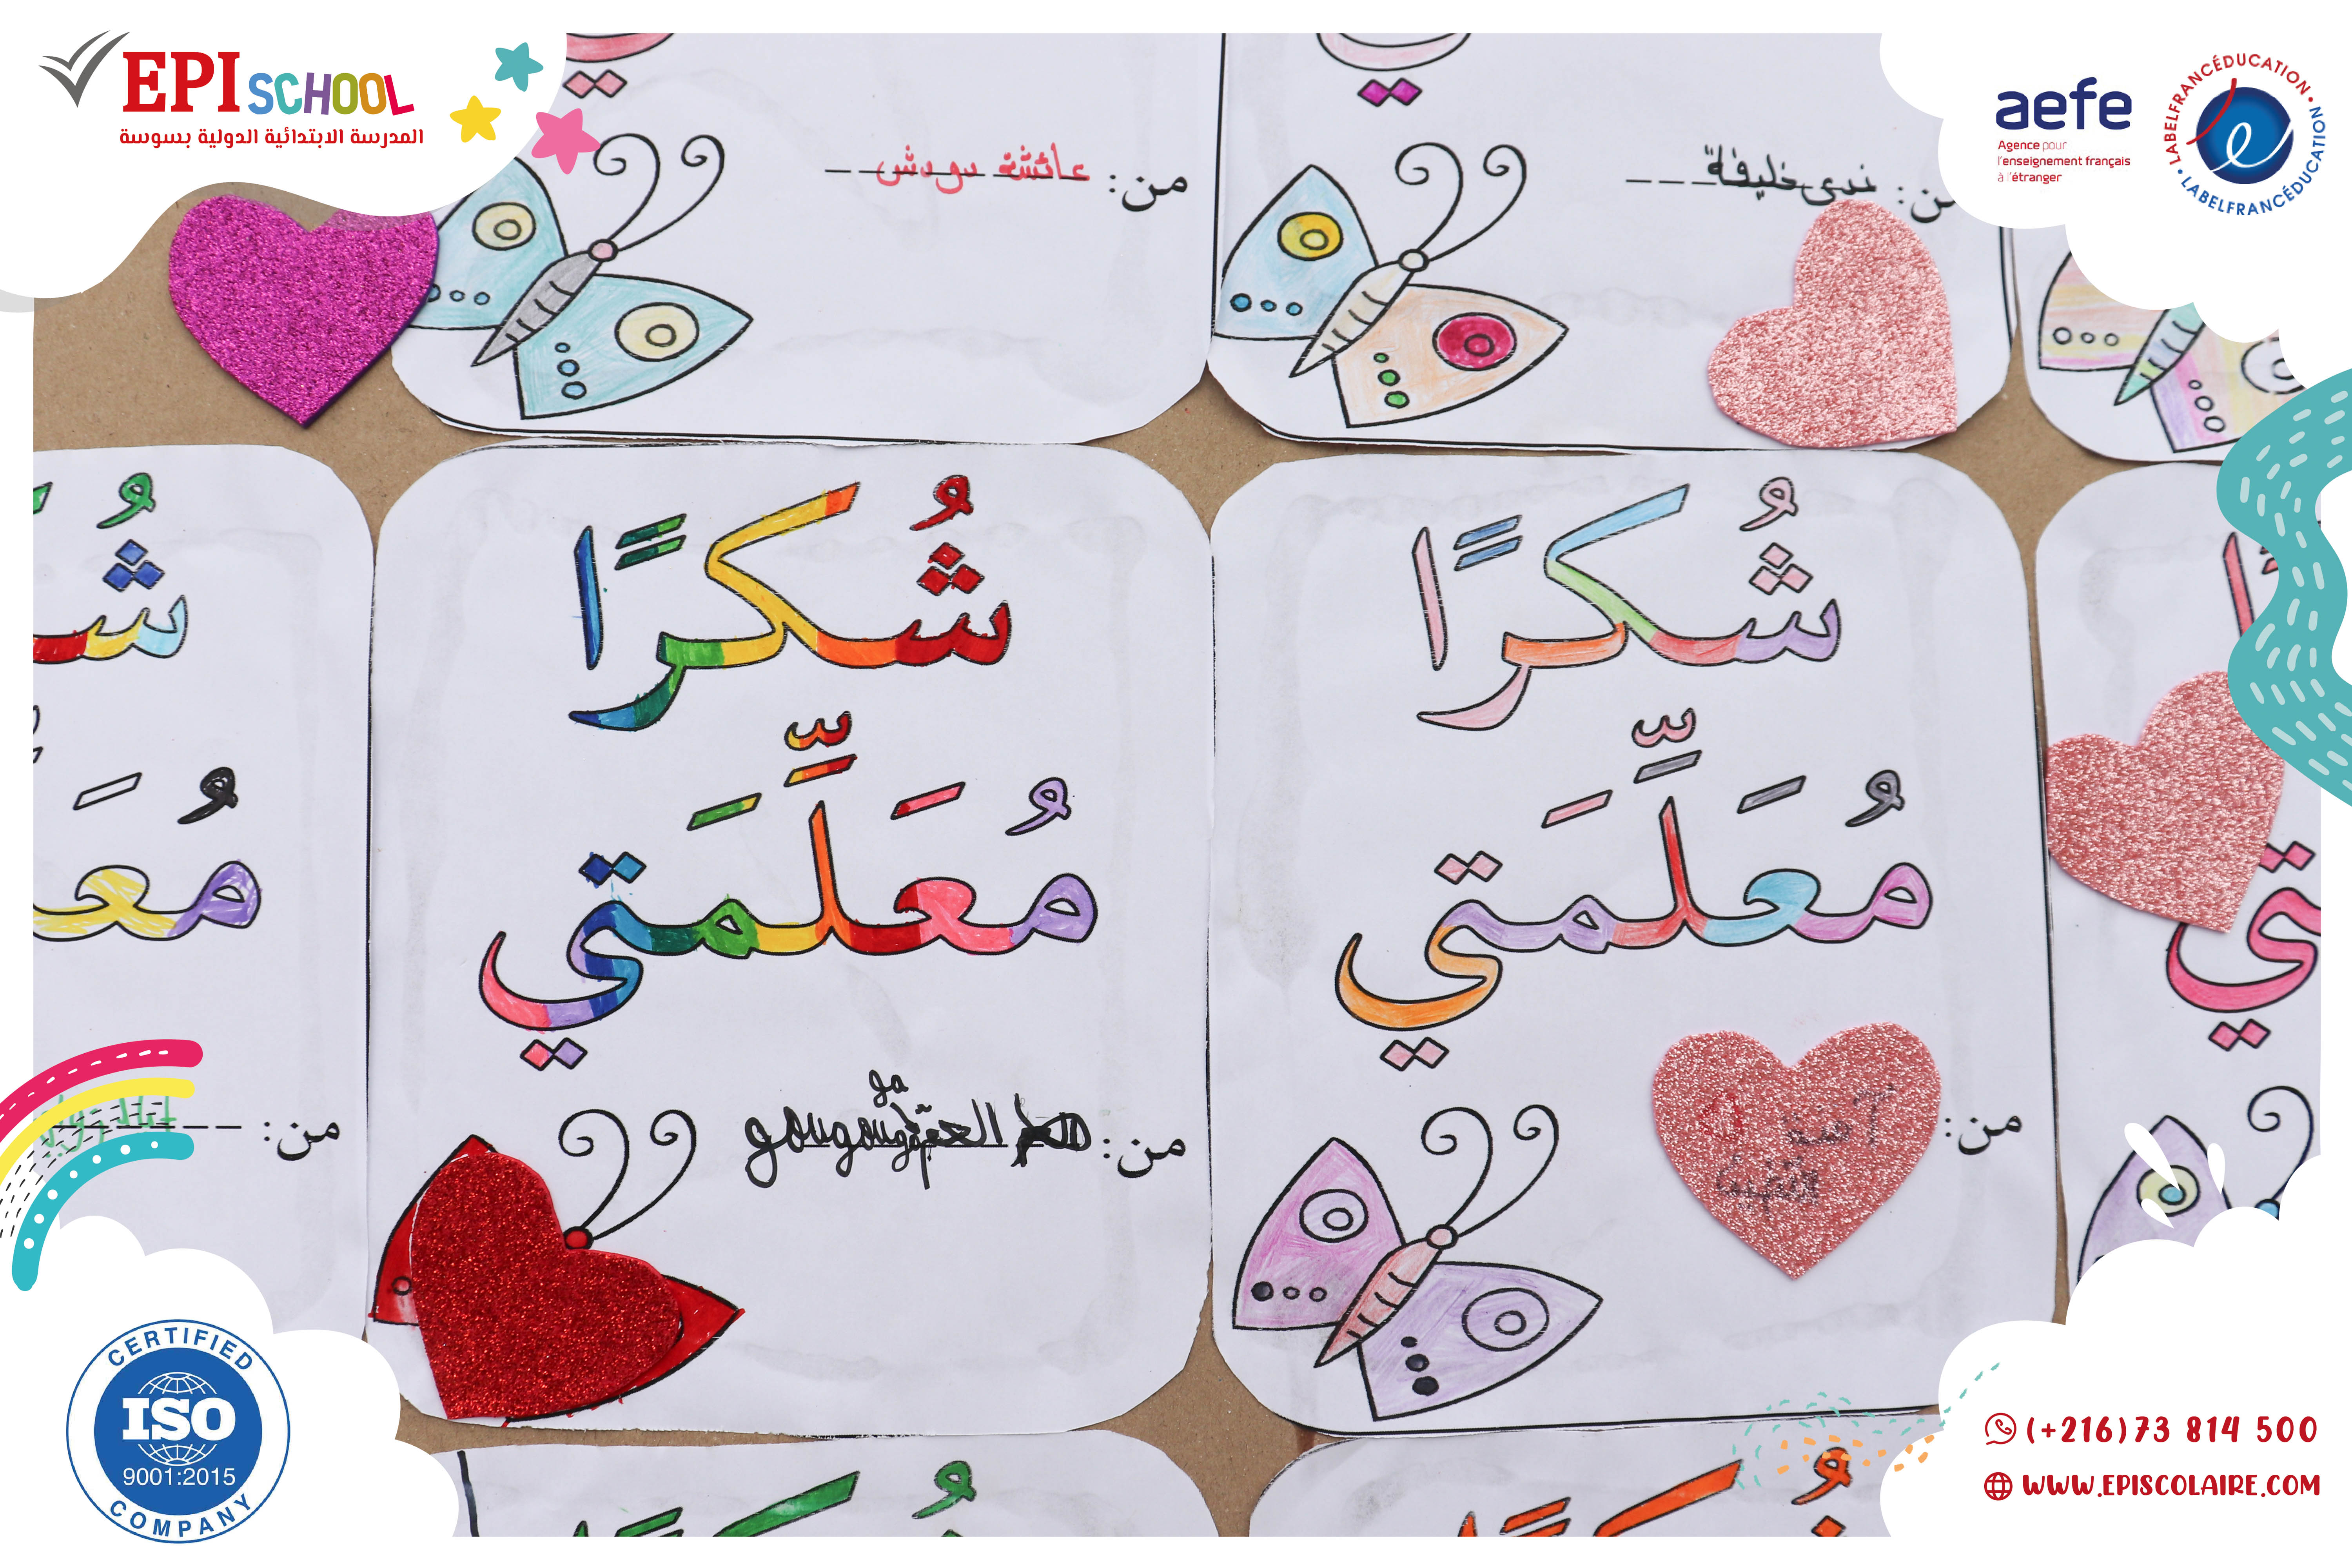 EPI SCHOOL
المدرسة الابتدائية الدولية بسوسة
aefe
Agence pour
l'enseignement français
à l'étranger
LABELFRANCÉDUCATION • LABELFRANCÉDUCATION •
من: عائشة
من: ندى خليفة
شُكرًا
مُعَلِّمَتي
من: gougou
شُكرًا
مُعَلِّمَتي
من: آمنة
من:
CERTIFIED
ISO
9001:2015
COMPANY
(+216)73 814 500
WWW.EPISCOLAIRE.COM